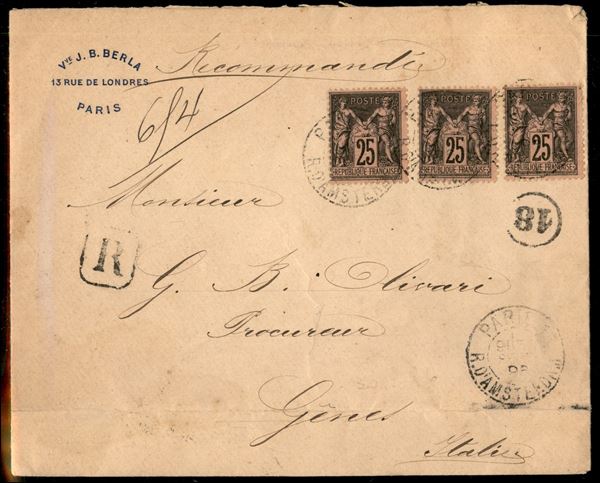 Vve J. B. BERLA
13 RUE DE LONDRES
PARIS
Recommandée
654
POSTE
25
REPUBLIQUE FRANÇAISE
POSTE
25
REPUBLIQUE FRANÇAISE
POSTE
25
REPUBLIQUE FRANÇAISE
R. D'AMSTERDAM
18
Monsieur
R
G. B. Olivari
Procureur
PARIS
R. D'AMSTERDAM
Gênes
Italie